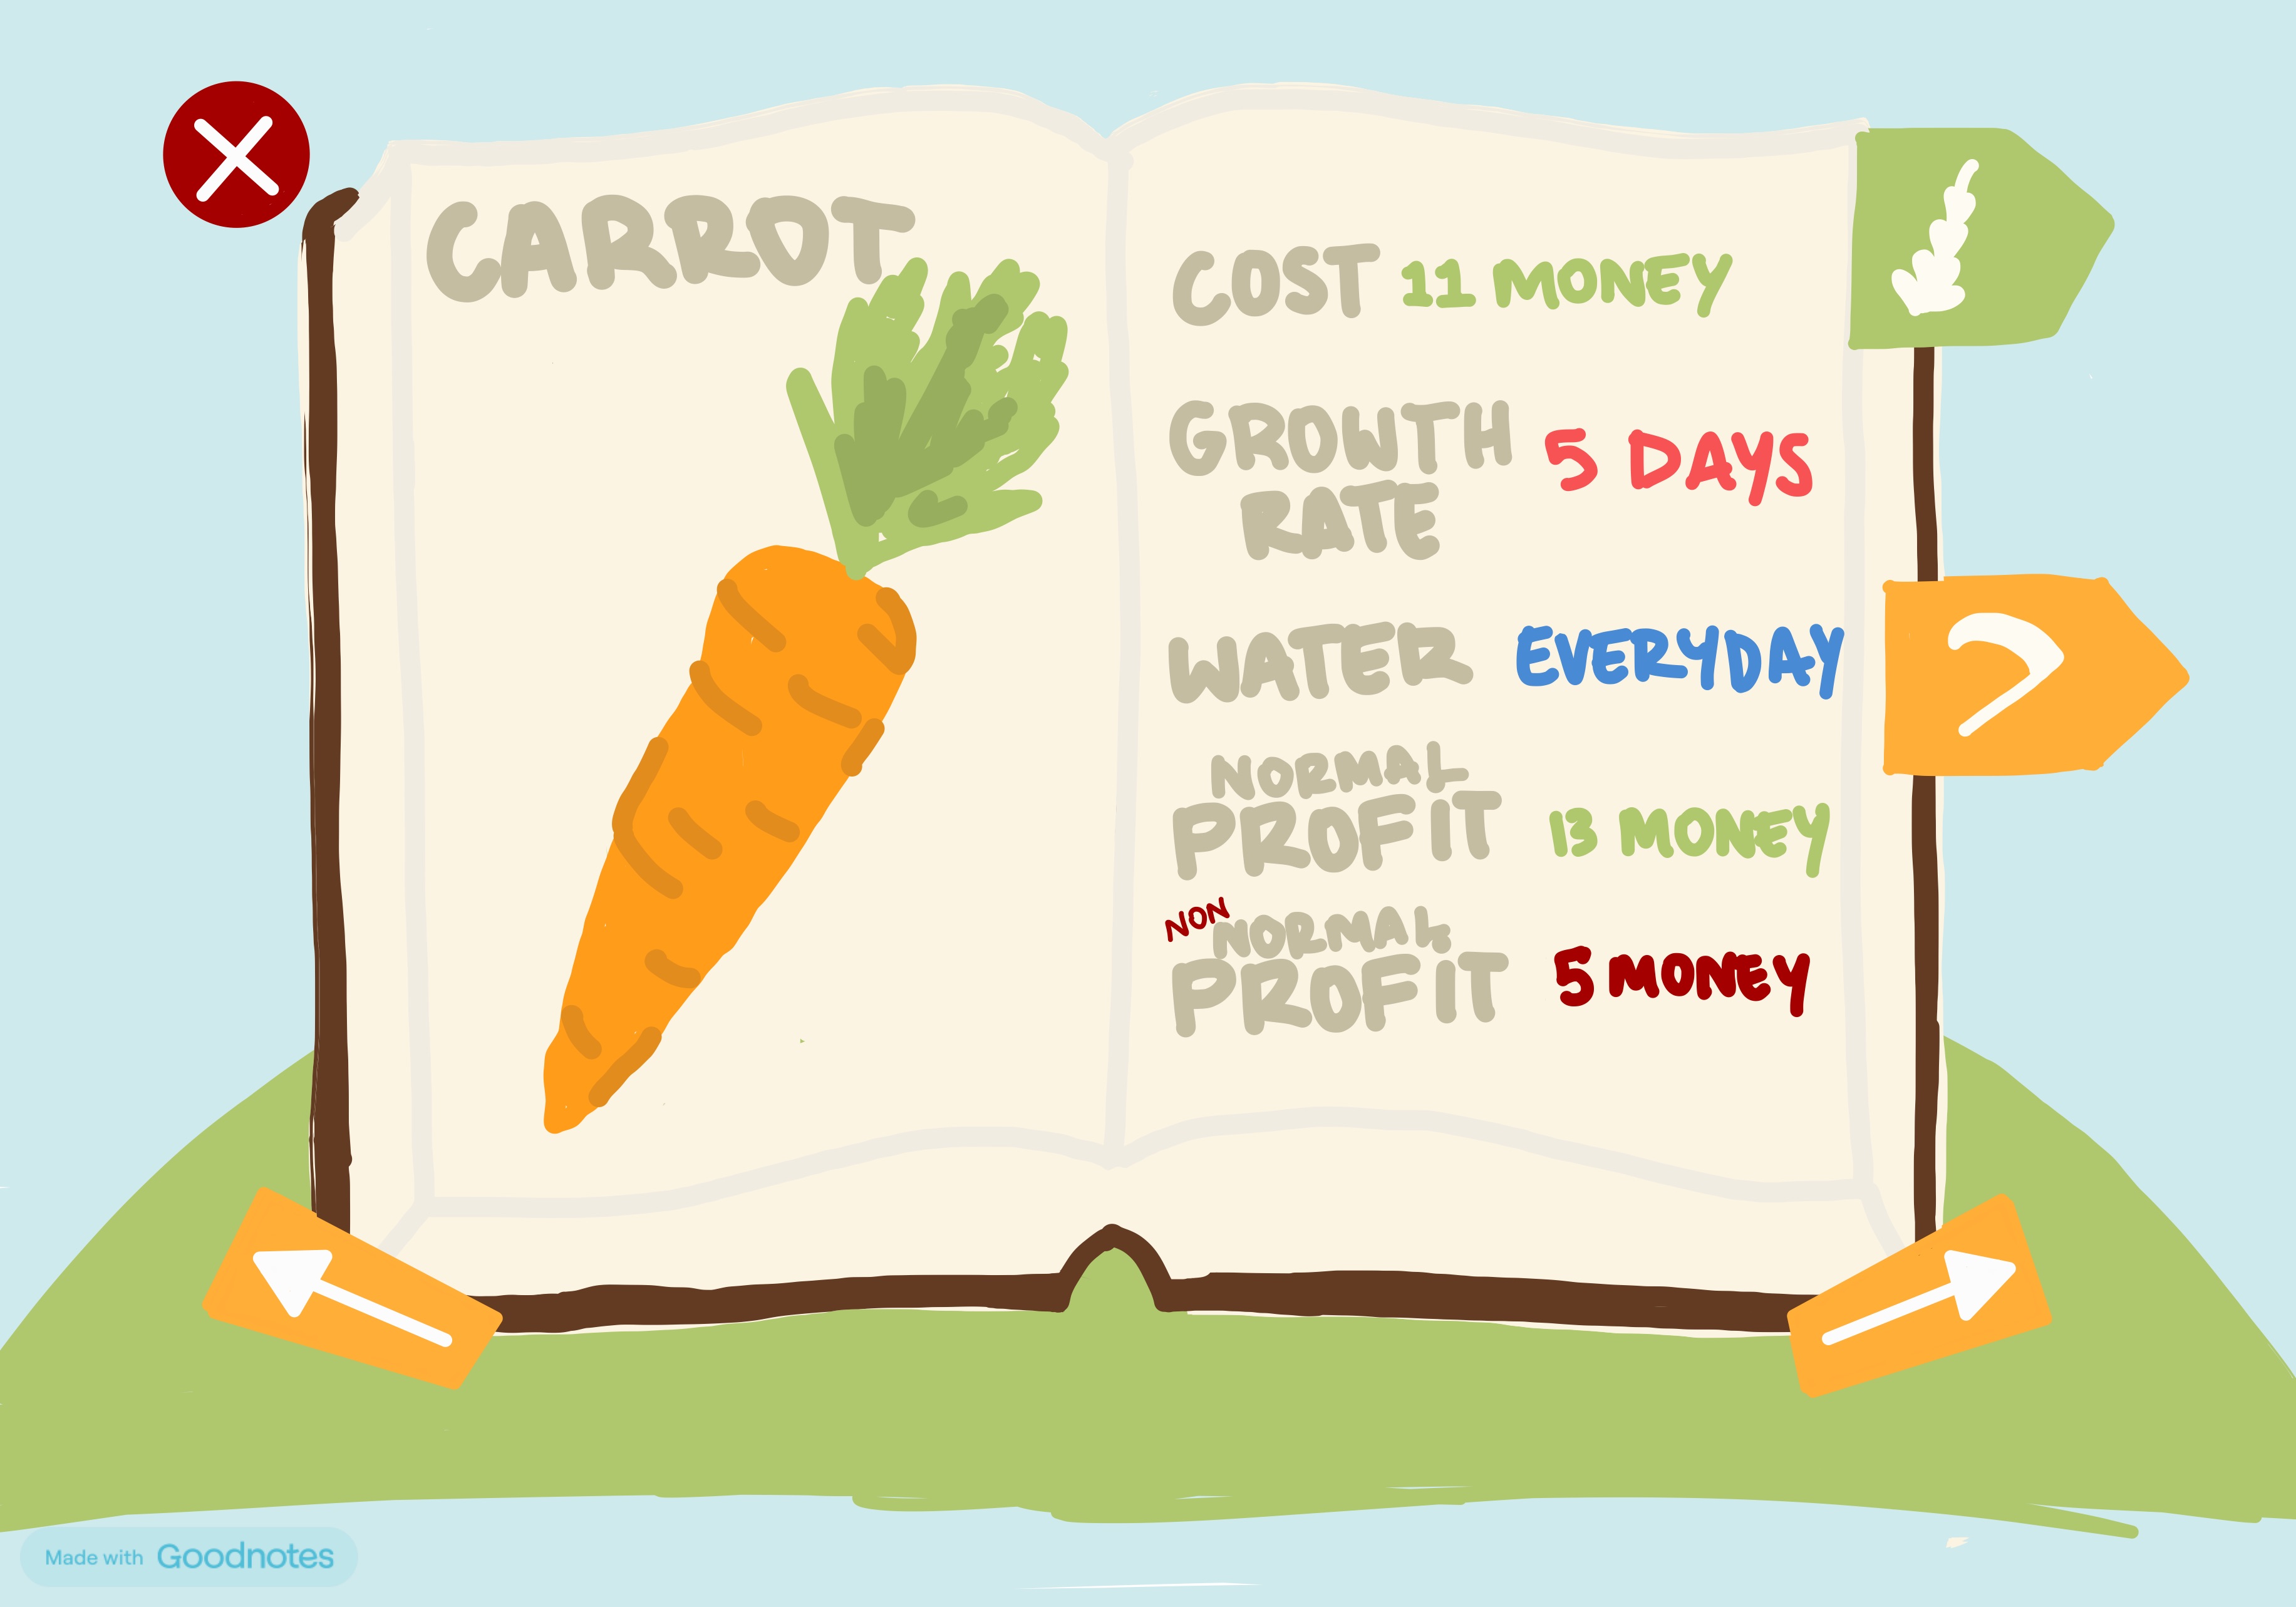 CARROT
COST 11 MONEY
GROWTH 5 DAYS
RATE
WATER EVERYDAY
NORMAL
PROFIT 13 MONEY
NON NORMAL
PROFIT 5 MONEY
Made with Goodnotes